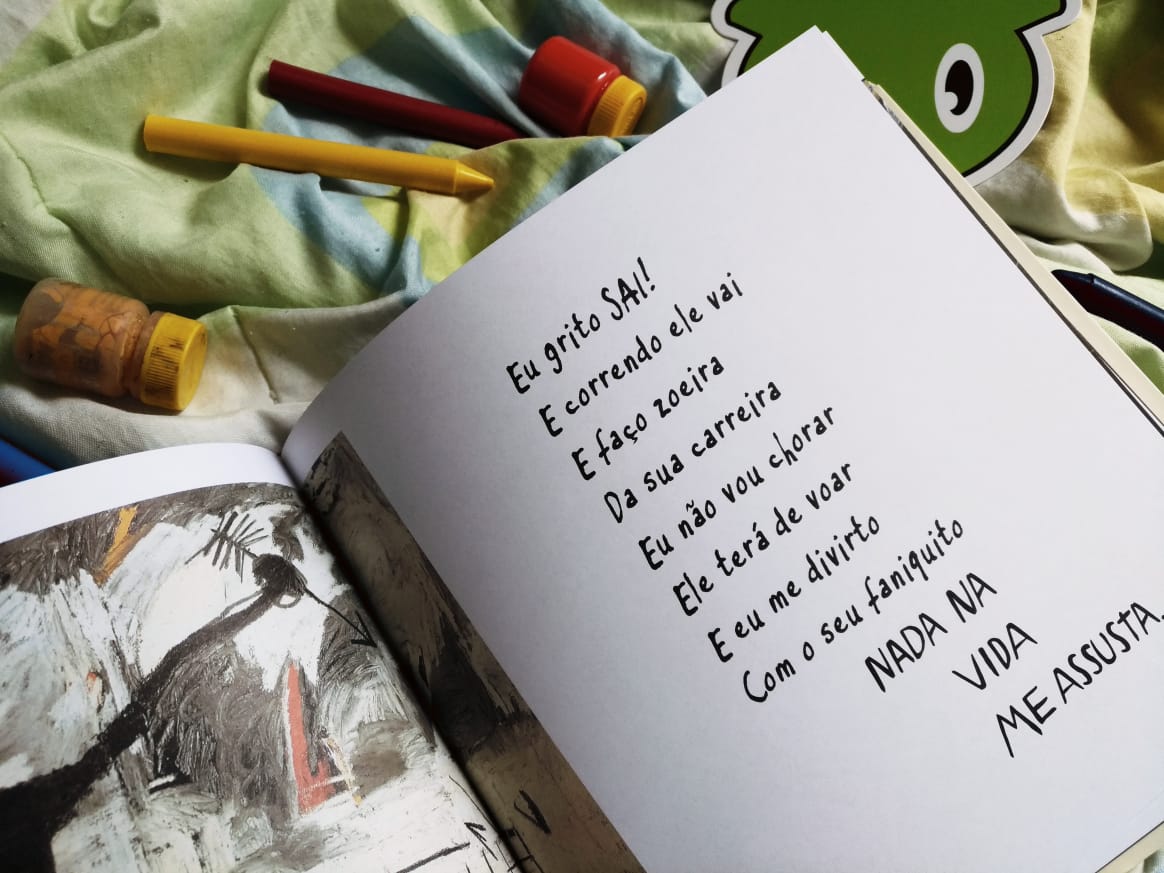 Eu grito SAI!
E correndo ele vai
E faço zoeira
Da sua carreira
Eu não vou chorar
Ele terá de voar
E eu me divirto
Com o seu faniquito
NADA NA
VIDA
ME ASSUSTA.